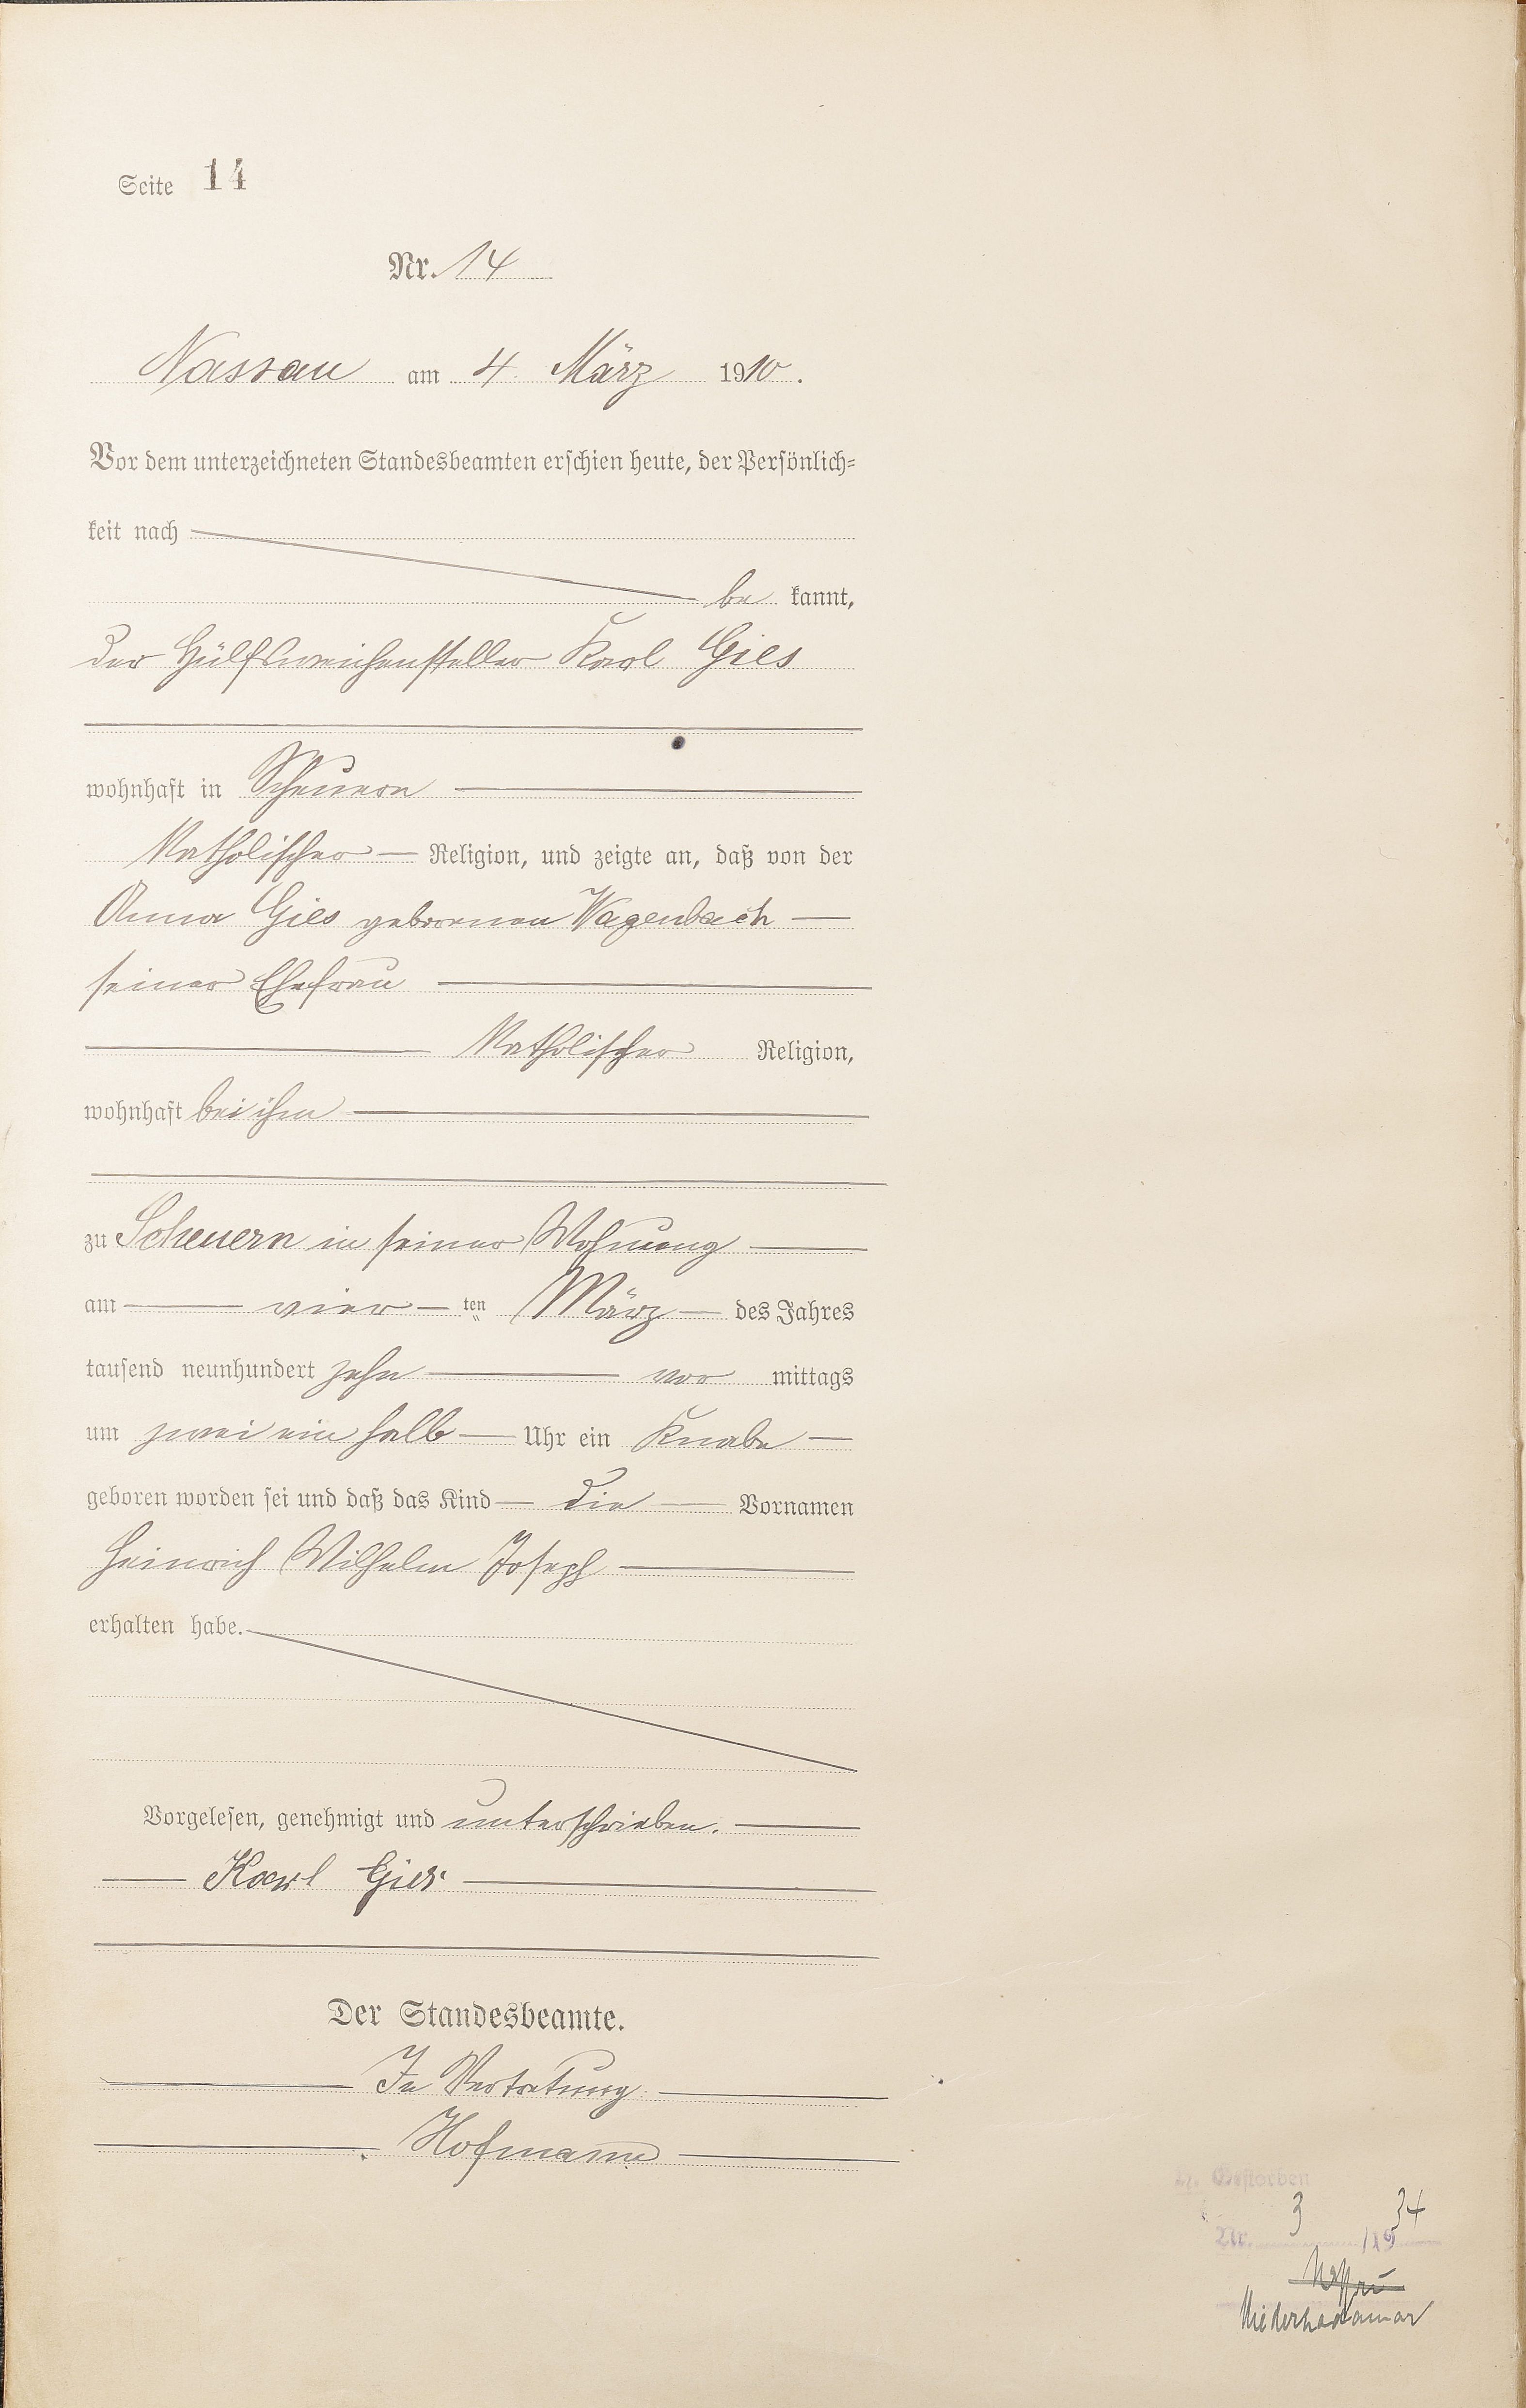 Seite 14
Nr. 14
Nassau am 4. März 1910.
Vor dem unterzeichneten Standesbeamten erschien heute, der Persönlich-
keit nach
be kannt,
der Hülfsweichensteller Karl Gies
wohnhaft in Scheuern
Katholischer Religion, und zeigte an, daß von der
Anna Gies geborenen Wagenbach
seiner Ehefrau
Katholischer Religion,
wohnhaft bei ihm
zu Scheuern in seiner Wohnung
am vier ten März des Jahres
tausend neunhundert zehn vor mittags
um zwei ein halb Uhr ein Knabe
geboren worden sei und daß das Kind die Vornamen
Heinrich Wilhelm Joseph
erhalten habe.
Vorgelesen, genehmigt und unterschrieben.
Karl Gies
Der Standesbeamte.
In Vertretung
Hofmann
Gestorben
Nr. 3 1934
Niederhadamar